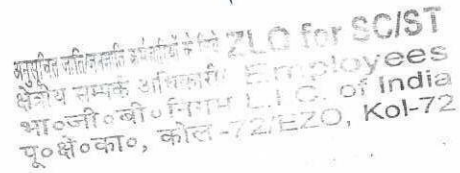 अनुसूचित जाति जनजाति कर्मचारियों के लिये ZLO for SC/ST
क्षेत्रीय सम्पर्क अधिकारी Employees
भा०जी०बी०निगम L.I.C. of India
पू०क्षे०का०, कोल-72/EZO, Kol-72